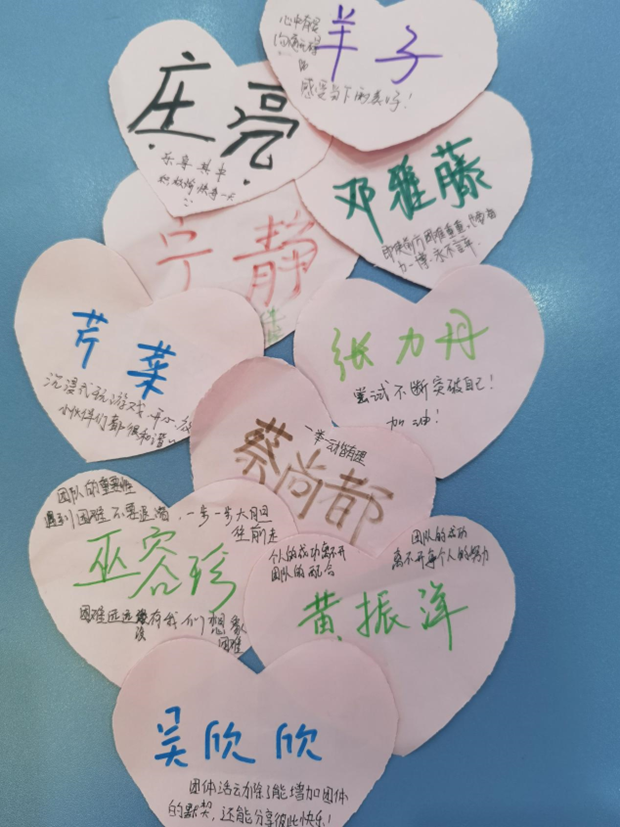 羊子
心中有爱
感受当下的美好！
庄亮
乐享其中
积极愉快每一天
邓雅藤
即使前方困难重重，
力一博，永不言弃．
宁静
芹菜
沉浸式玩游戏
小伙伴们都很和谐
张力丹
尝试不断突破自己！
加油！
蔡尚都
一举一动皆有理
团队的重要性
遇到困难不要退潜，一步一步大胆
往前走
巫容珍
困难远远没有我们想象
困难
团队的成功
离不开每个人的努力
个人的成功离不开
团队的配合
黄振洋
吴欣欣
团体活动除了能增加团体
的默契，还能分享彼此快乐！